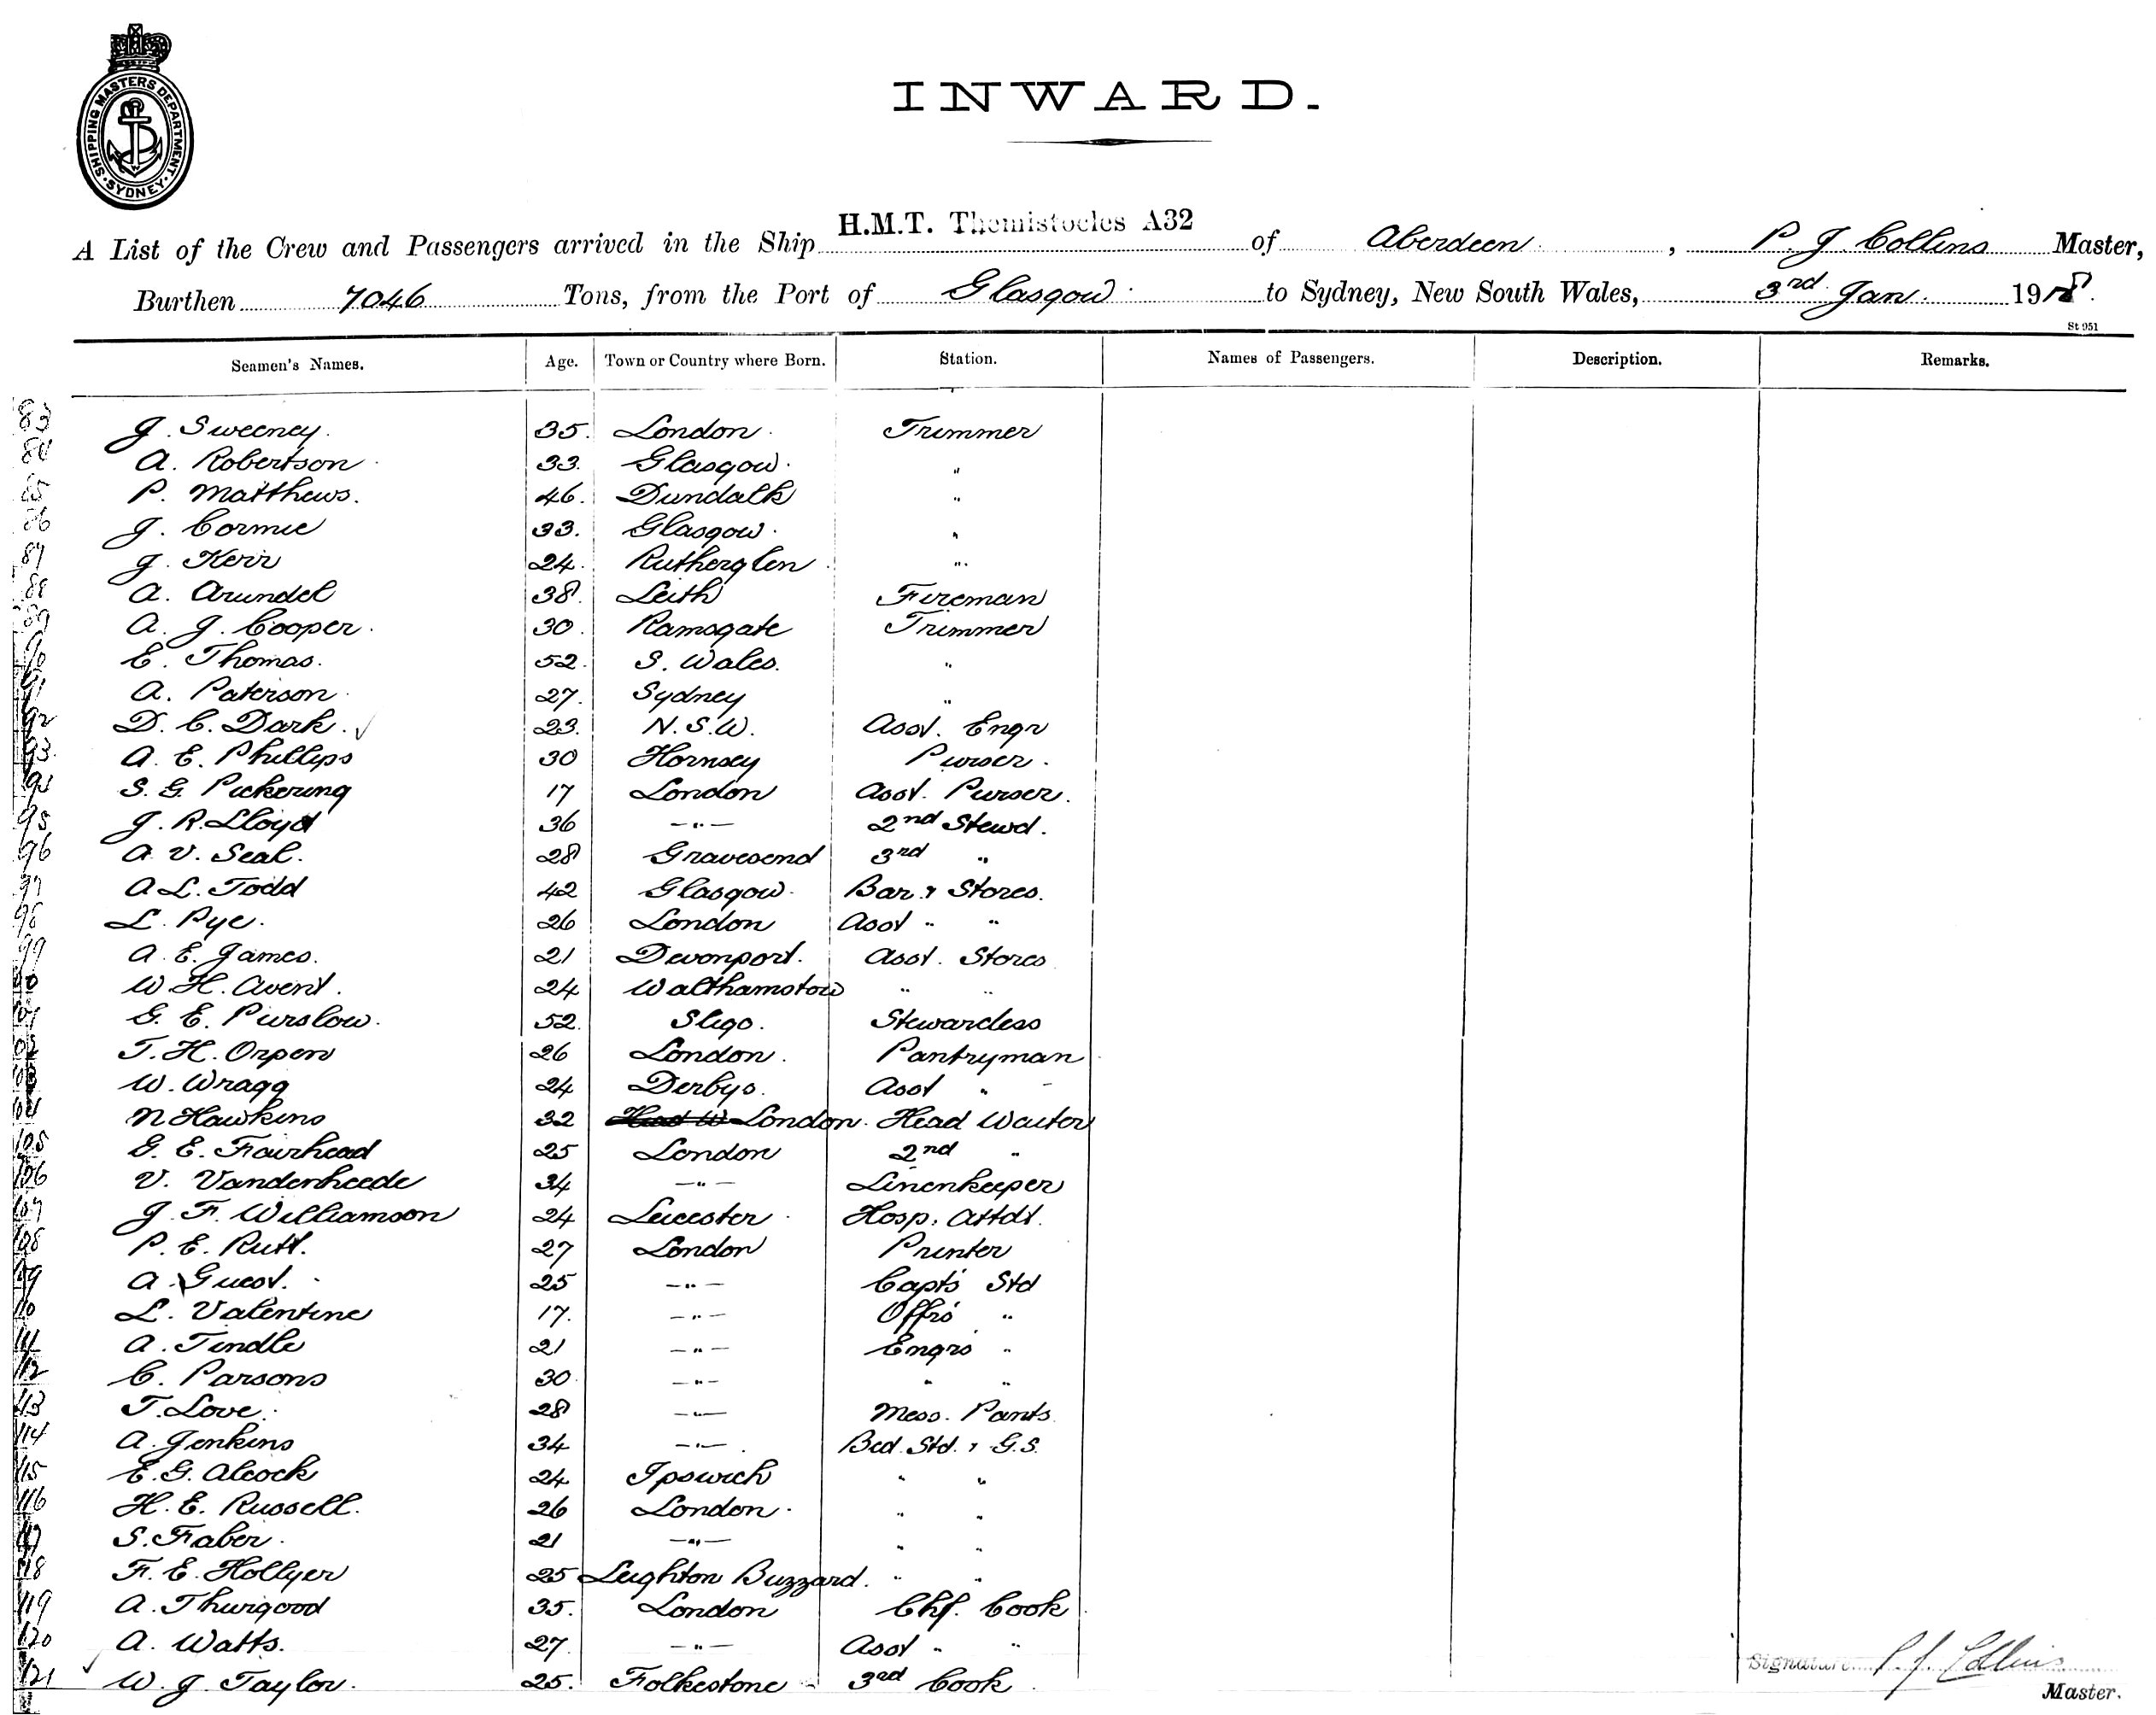 SHIPPING MASTERS DEPARTMENT
SYDNEY
INWARD.
A List of the Crew and Passengers arrived in the Ship H.M.T. Themistocles A32 of Aberdeen, P. J. Collins Master,
Burthen 7046 Tons, from the Port of Glasgow to Sydney, New South Wales, 3rd Jan. 1918.
St 951
Seamen's Names. Age. Town or Country where Born. Station. Names of Passengers. Description. Remarks.
83 J. Sweeney. 35. London. Trimmer
84 A. Robertson 33. Glasgow. "
85 P. Matthews. 46. Dundalk "
86 J. Cormie 33. Glasgow. "
87 J. Kerr 24. Rutherglen. "
88 A. Arundel 38. Leith Fireman
89 A. J. Cooper. 30. Ramsgate Trimmer
90 E. Thomas. 52. S. Wales. "
91 A. Paterson. 27. Sydney "
92 D. C. Dark. ✓ 23. N.S.W. Asst. Engr
93. A. E. Phillips 30 Hornsey Purser.
94 S. G. Pickering 17 London Asst. Purser.
95 J. R. Lloyd 36 —"— 2nd Stewd.
96 A. V. Seal. 28 Gravesend 3rd "
97 A L. Todd 42 Glasgow. Bar. & Stores.
98 L. Pye. 26 London Asst " "
99 A. E. James. 21 Devonport. Asst. Stores
100 W. H. Avent. 24 Walthamstow " "
101 G. E. Purslow. 52. Sligo. Stewardess
102 T. H. Orpen 26 London. Pantryman
103 W. Wragg 24 Derbys. Asst "
104 N Hawkins 32 London. Head Waiter
105 G. E. Fairhead 25 London 2nd "
106 V. Vandenheede 34 —"— Linenkeeper
107 J. F. Williamson 24 Leicester. Hosp. Attdt.
108 P. E. Rutt. 27 London Printer
109 A. Guest. 25 —"— Capts Std
110 L. Valentine 17. —"— Offrs "
111 A. Tindle 21 —"— Engrs "
112 C. Parsons 30. —"— " "
113 T. Love. 28 —"— Mess. Pants.
114 A. Jenkins 34 —"— Bed. Std. & G.S.
115 E. G. Alcock 24 Ipswich " "
116 H. E. Russell. 26 London. " "
117 S. Faber. 21 —"— " "
118 F. E. Hollyer 25 Leighton Buzzard. " "
119 A. Thurgood 35. London Chf. Cook
120 A. Watts. 27. —"— Asst " "
121 ✓ W. J. Taylor. 25. Folkestone 3rd Cook
Signature P. J. Collins
Master.